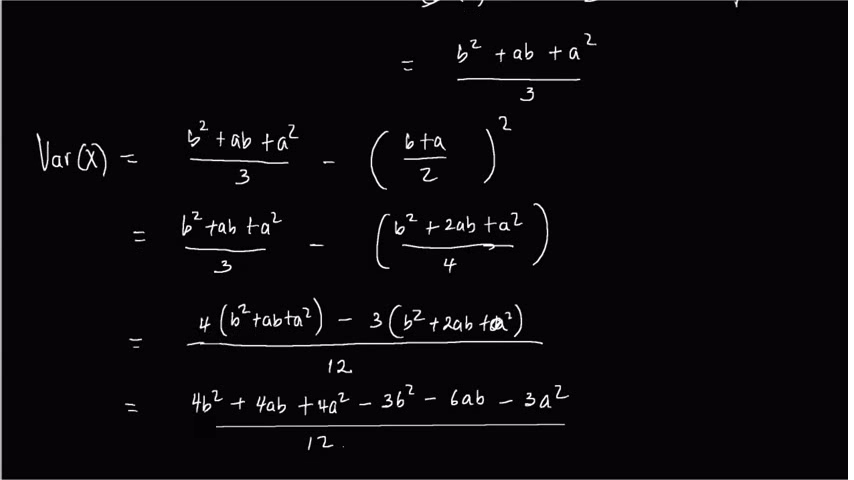 = (b² + ab + a²)/3
Var(X) = (b² + ab + a²)/3 - ((b+a)/2)²
= (b² + ab + a²)/3 - ((b² + 2ab + a²)/4)
= (4(b² + ab + a²) - 3(b² + 2ab + a²))/12
= (4b² + 4ab + 4a² - 3b² - 6ab - 3a²)/12